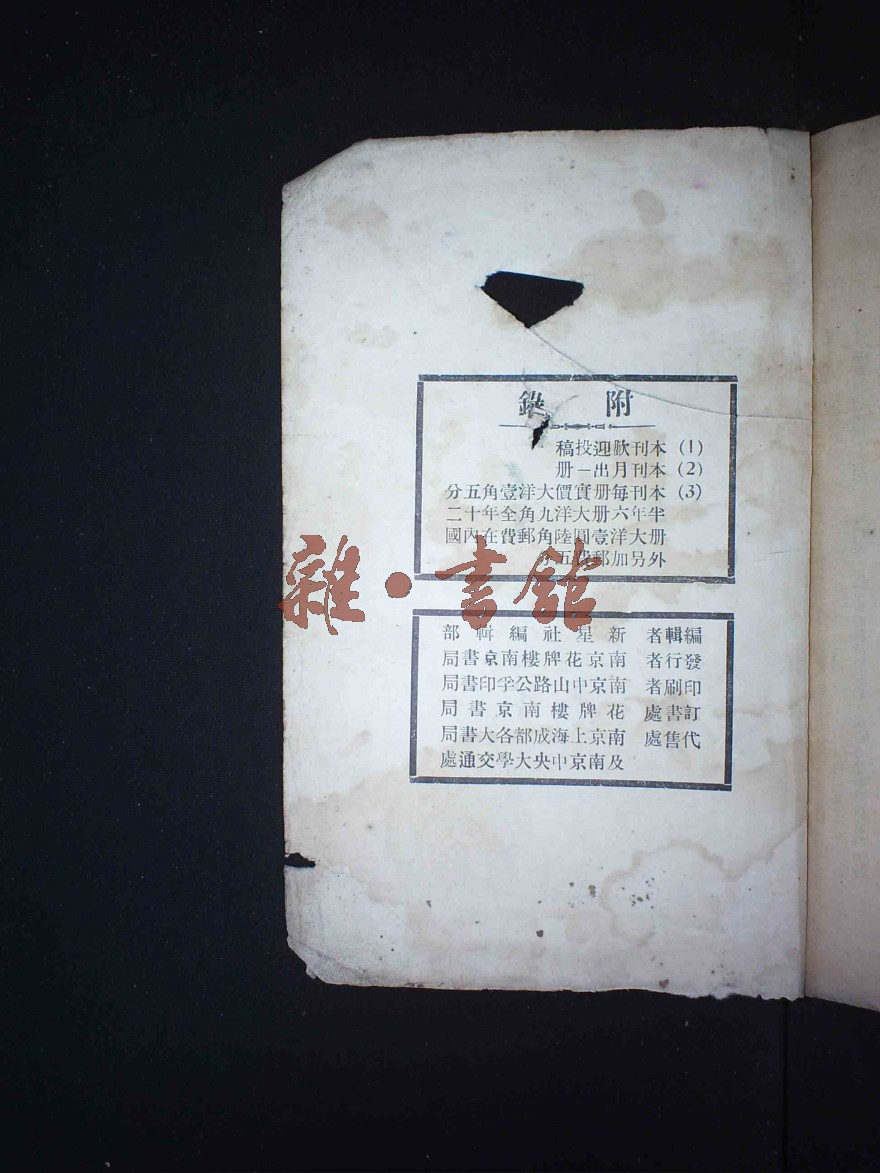 附錄
(1) 本刊歡迎投稿
(2) 本刊月出一册
(3) 本刊每册實價大洋壹角五分
半年六册大洋九角全年十二
册大洋壹圓陸角郵費在內國
外另加郵費五
編輯者 新星社編輯部
發行者 南京花牌樓南京書局
印刷者 南京中山路公孚印書局
訂書處 花牌樓南京書局
代售處 南京上海成都各大書局
及南京中央大學交通處
雜·書館